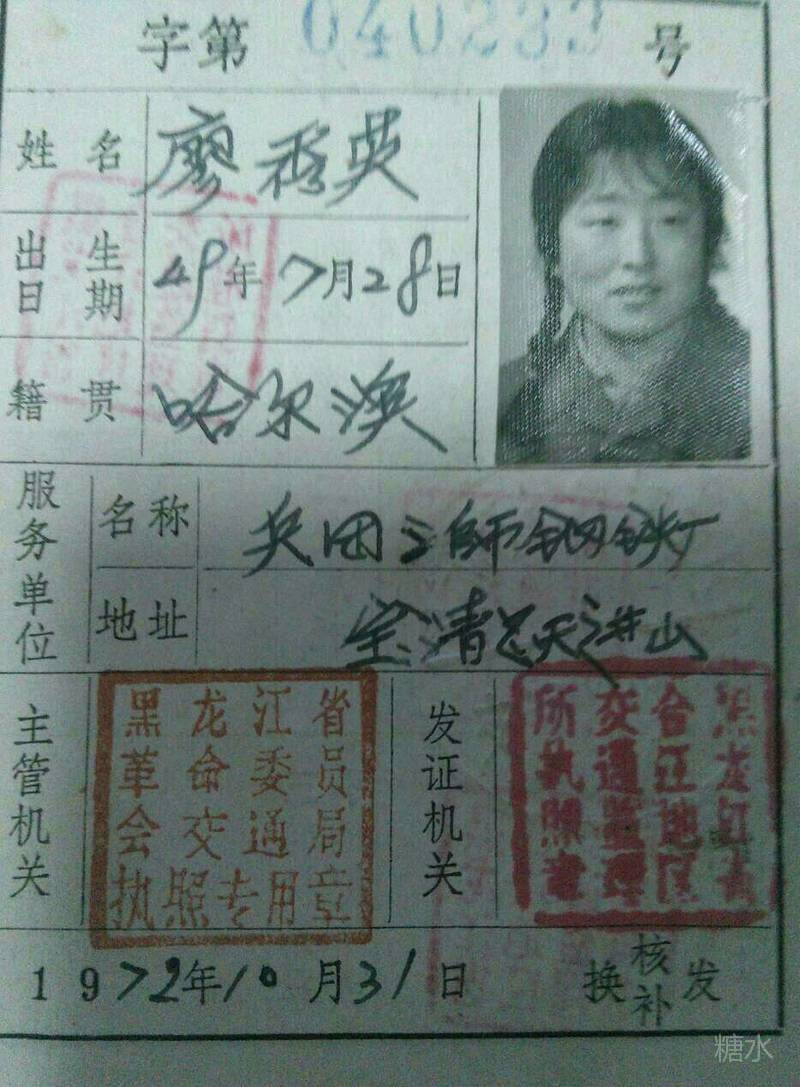 字第 040233 号
姓名 廖秀英
出生日期 49年7月28日
籍贯 哈尔滨
服务单位
名称 兵团三师钢铁厂
地址 宝清县天进山
主管机关
黑龙江省
革命委员
会交通局
执照专用章
发证机关
黑龙江省
合江地区
交通监理
所执照章
1972年10月31日
换核补发
糖水